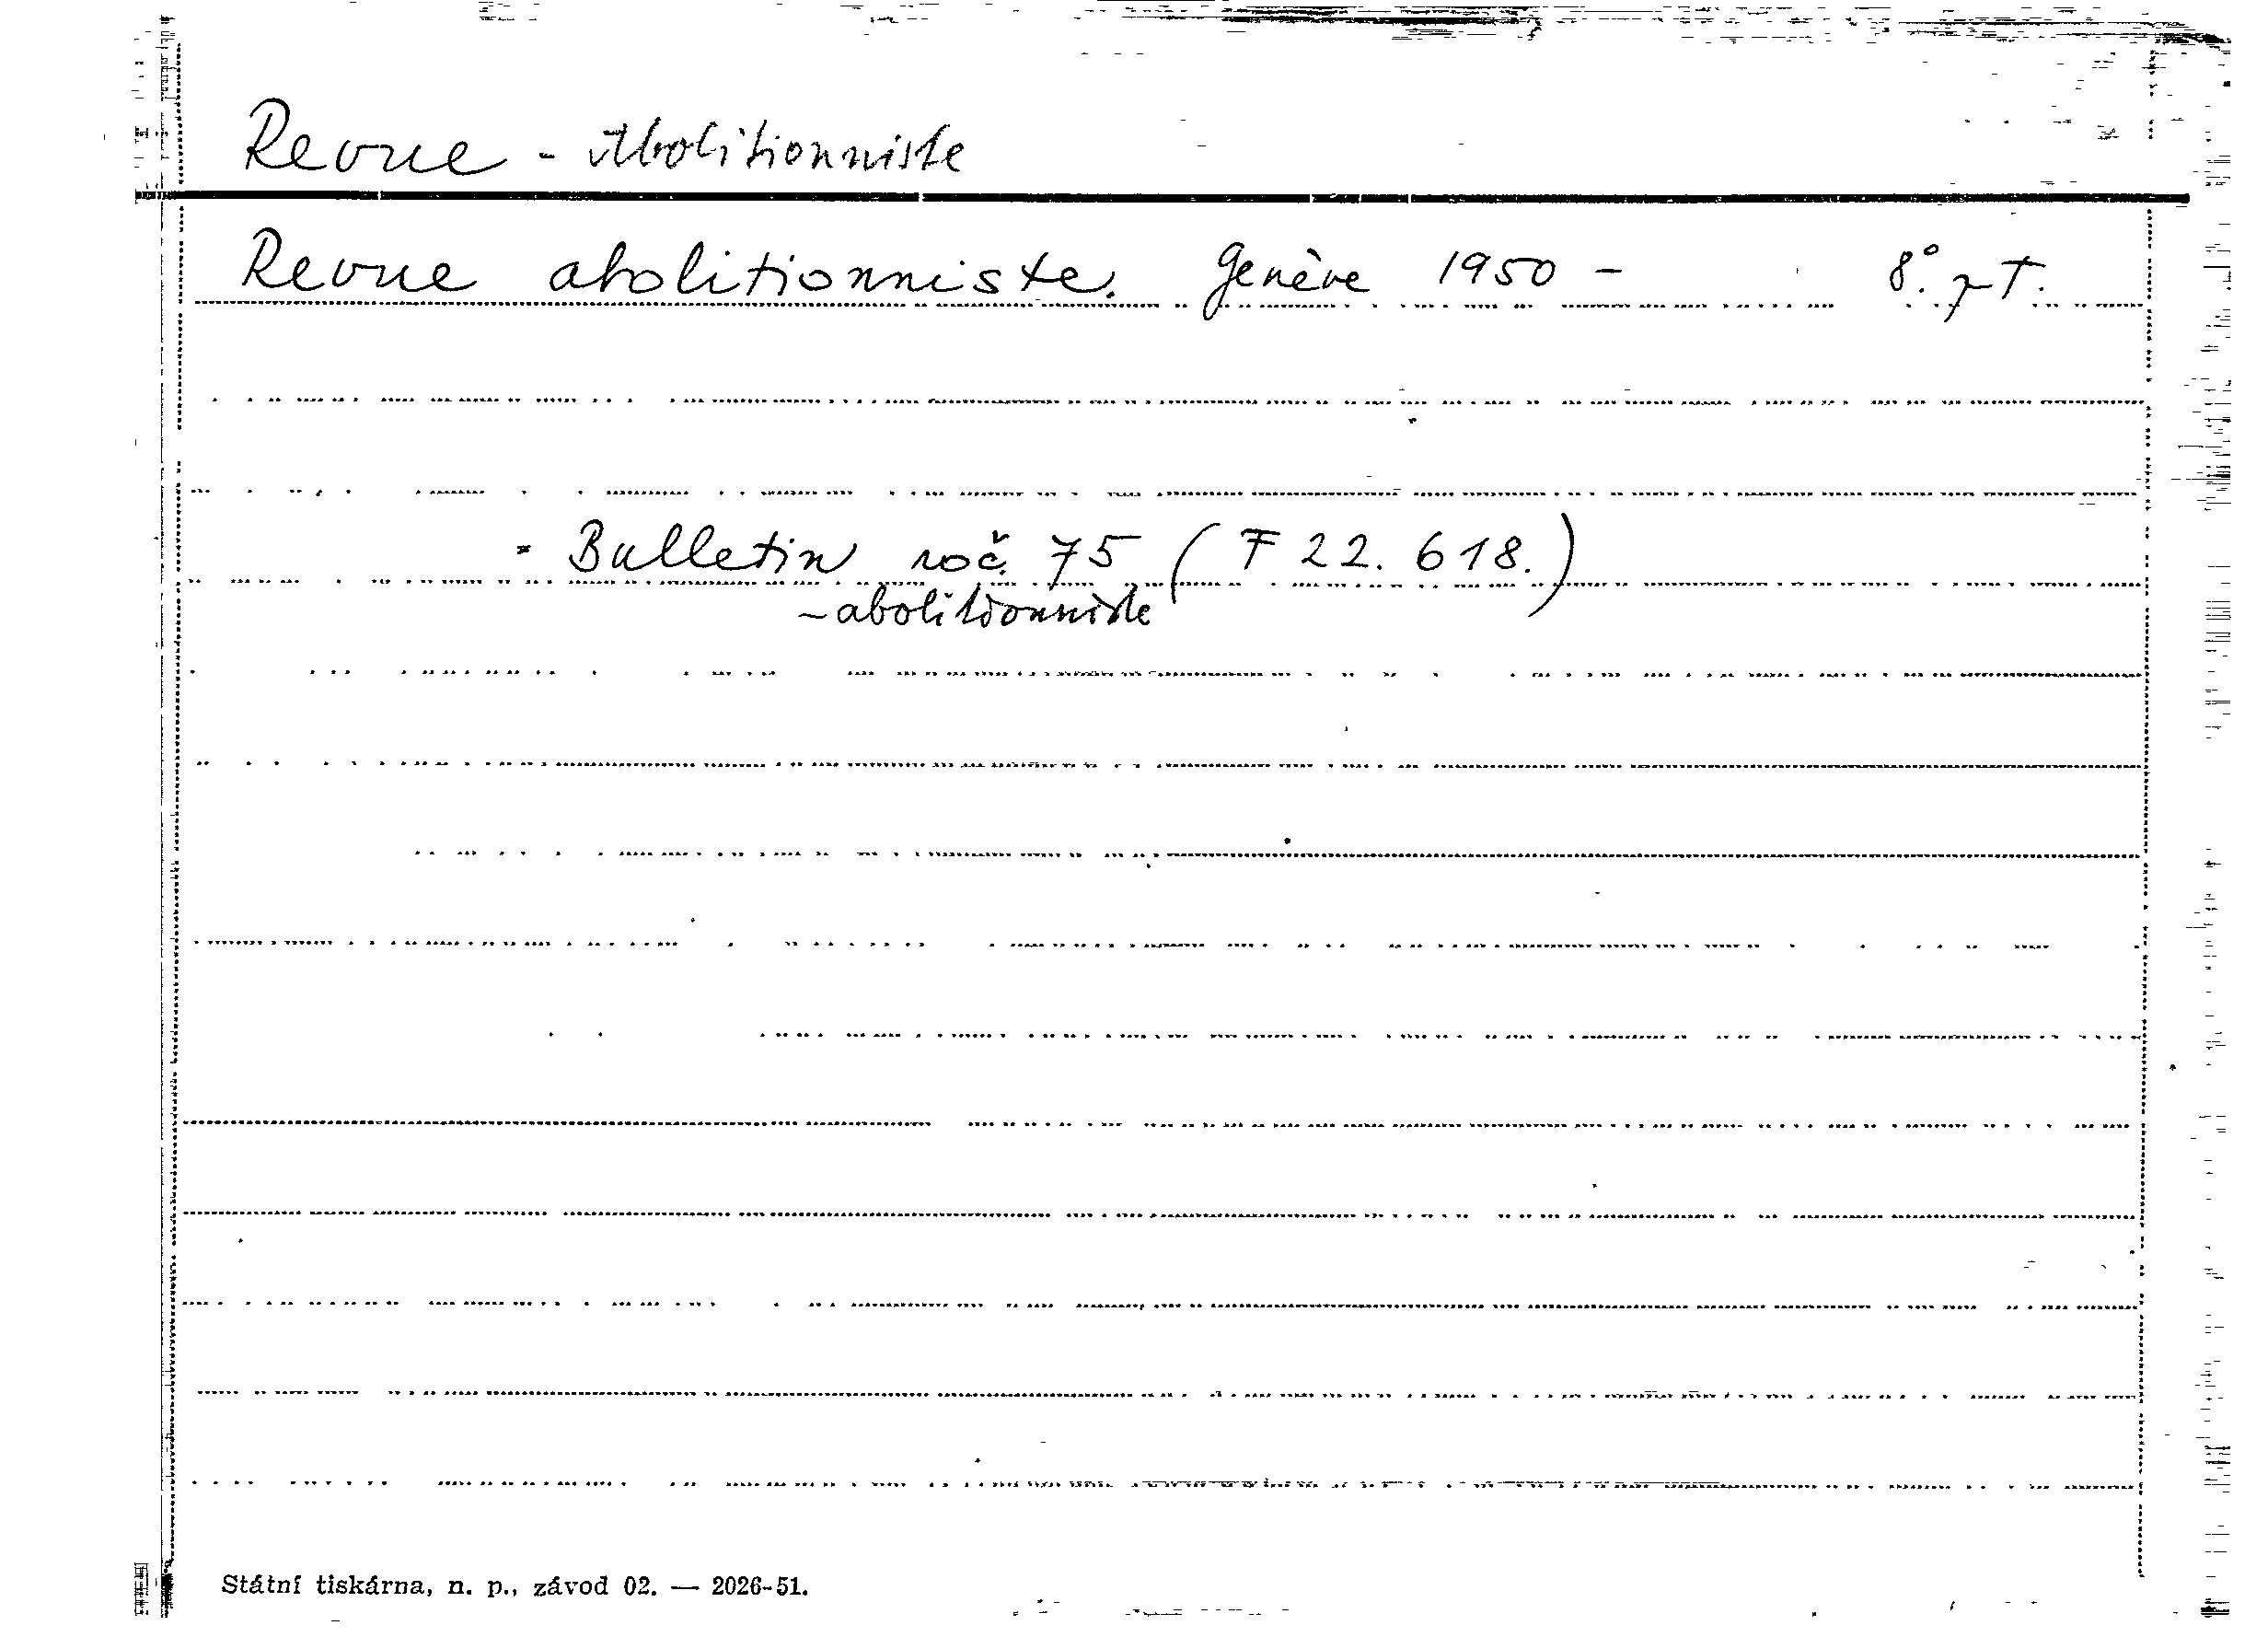 Revue - Abolitionniste
Revue abolitionniste. Genève 1950 - 8°. T.
= Bulletin roč. 75 (F 22. 618.)
- abolitionniste
Státní tiskárna, n. p., závod 02. — 2026-51.